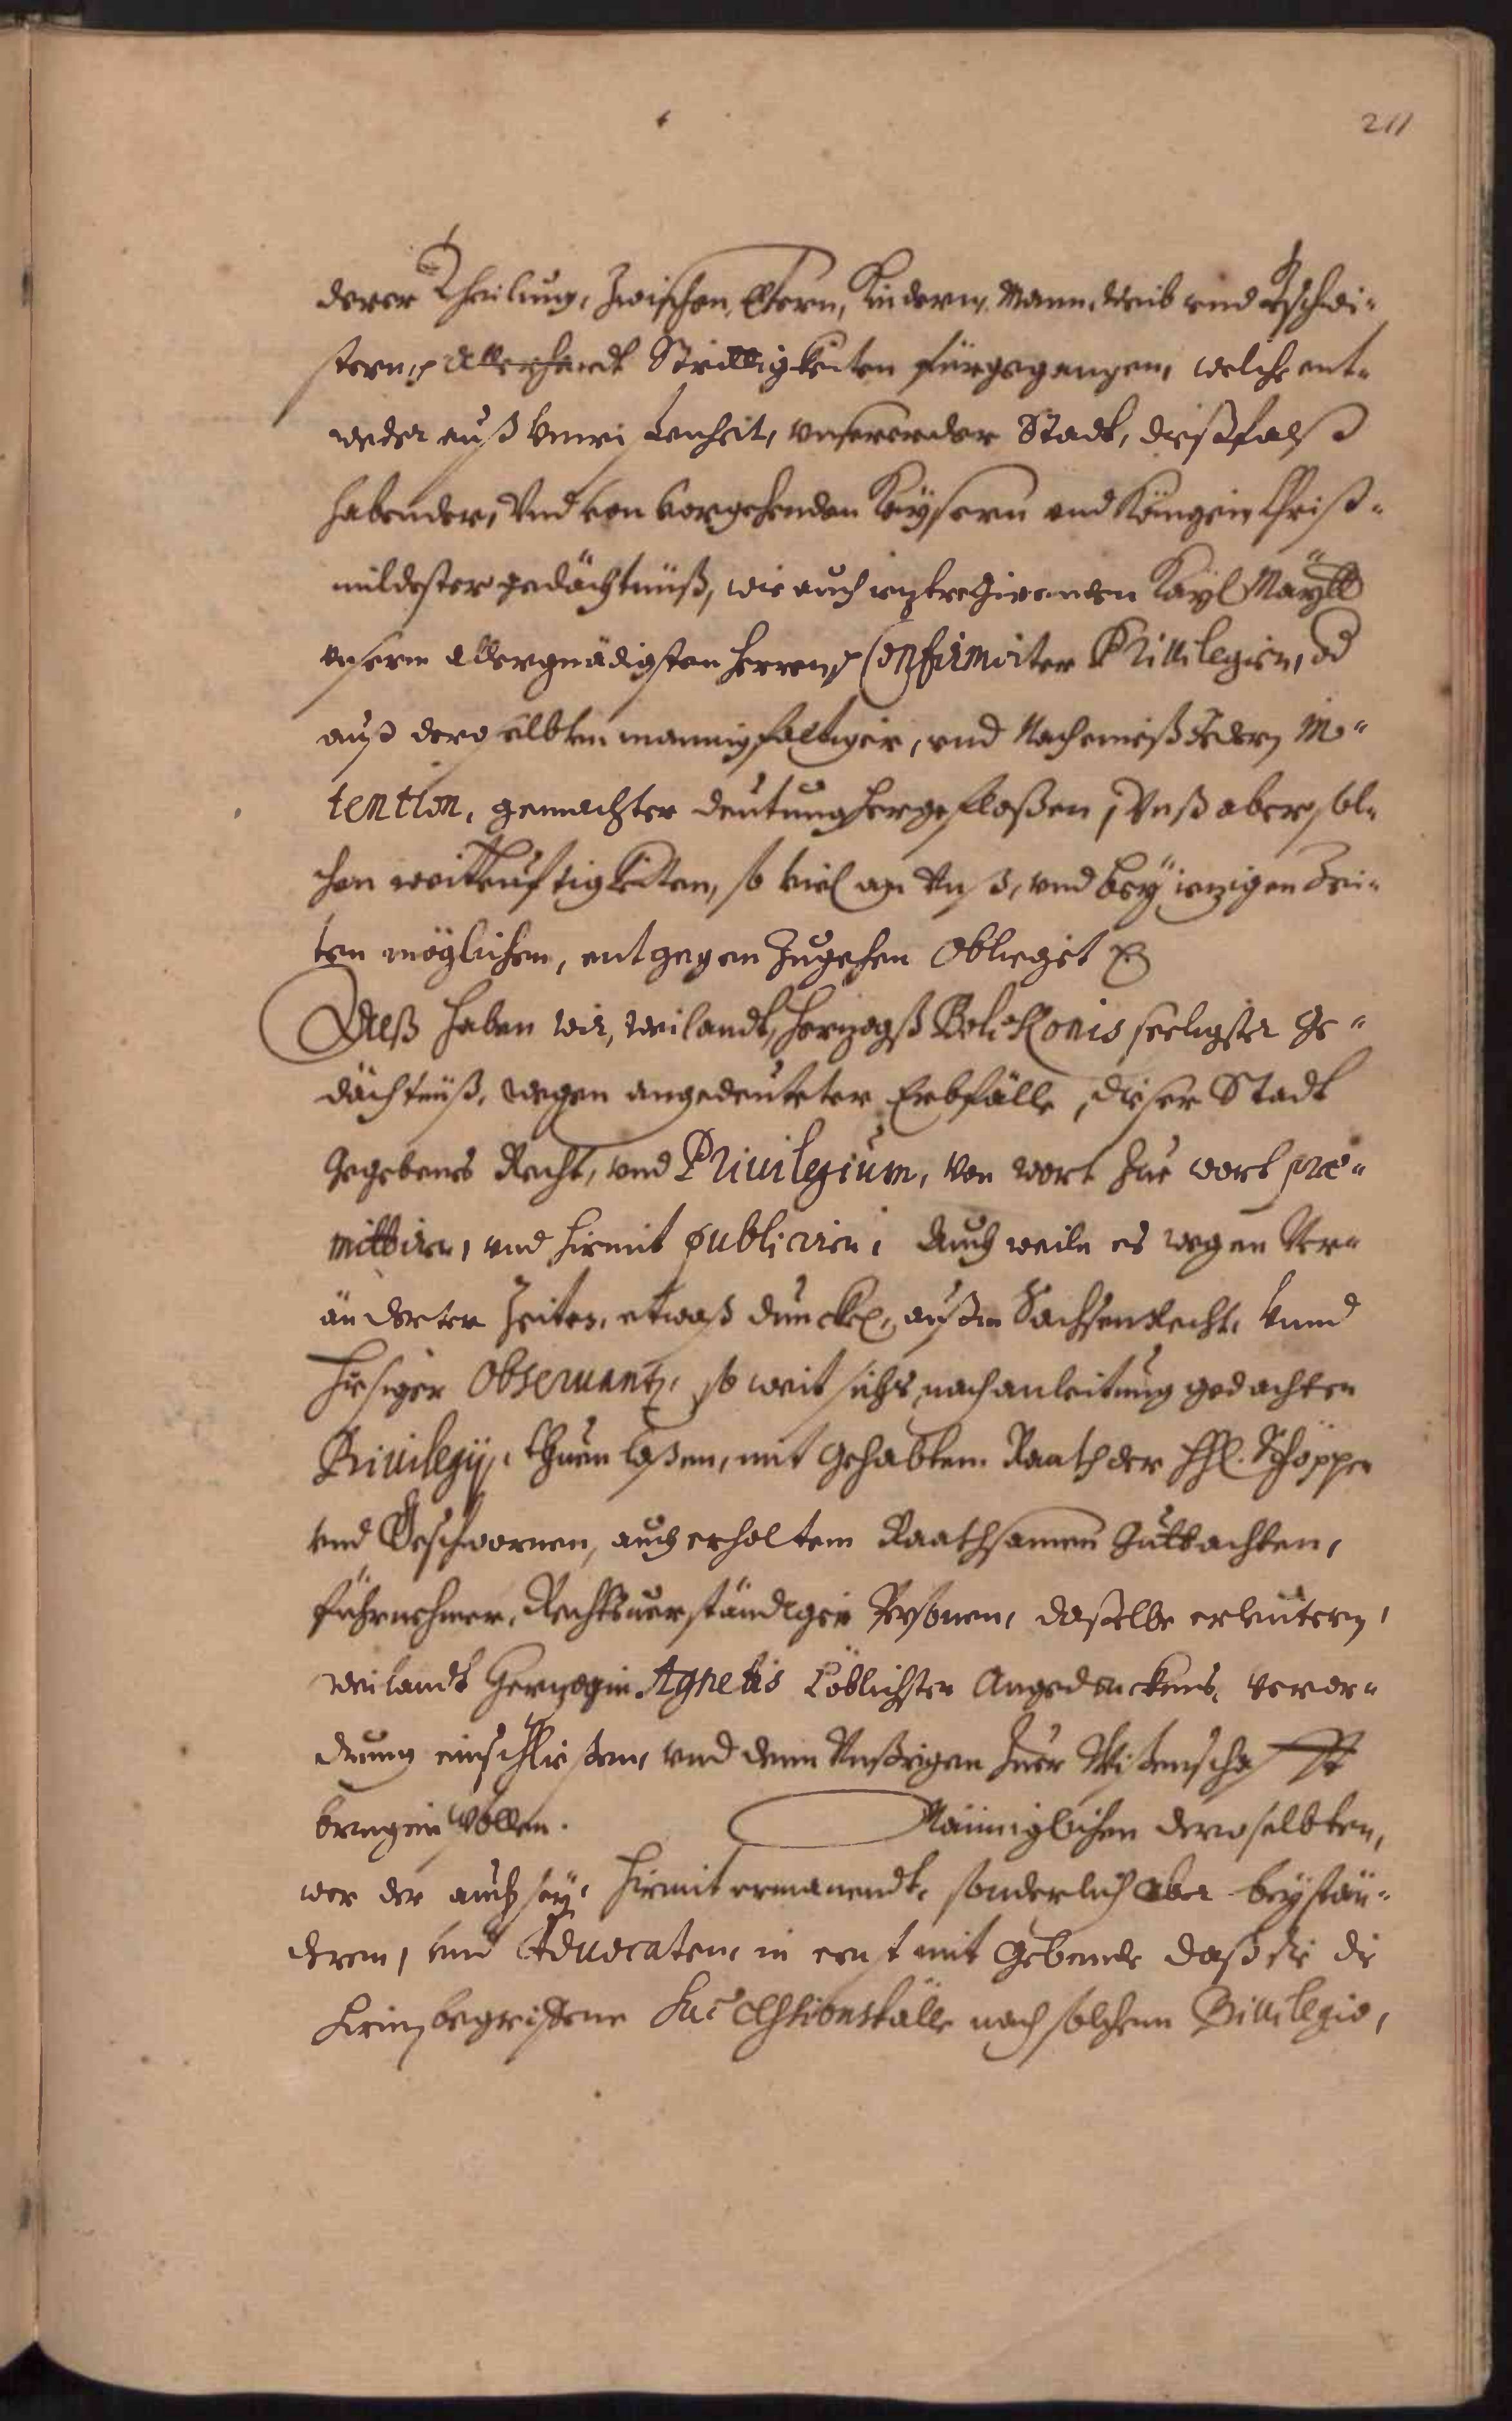 211
derer Theilung, Zwischen Eltern, Kindern, Mann, Weib und Geschwi-
stern, Allerhandt Strittigkeiten fürgegangen, welche ent-
weder auß Vnwißenheit, vnserer der Stadt, dießfalß
habender, Vnd von vorgehenden Kaysern vnd Königen Christ-
mildester gedächtnüß, wie auch ietztregirenden Kayl Maytt
vnserm Allergnädigsten Herren Confirmirter Privilegien, od
auß derselbten mannigfaltiger, vnd Nach eines Jedern In-
tention, gemachter deutung hergefloßen, Vnß aber, sol-
chen weitleuftigkeiten, so viel an Vnß, vnd bey ietzigen Zei-
ten möglichen, entgegen Zugehen Oblieget
Alß haben wir, weilandt, Hertzogß Bolckonis seeligster Ge-
dächtnüß, wegen angedeuteter Erbfälle, dieser Stadt
Gegebenes Recht, vnd Privilegium, Von wort Zue wort præ-
mittiren, vnd hiermit publiciren, Auch weiln es wegen Ver-
änderter Zeiten, etwaß dunckel, außm Sachsen Recht, vnnd
hiesiger Observantz, so weit sichs nach anleitung gedachten
Privilegij, thuen laßen, mit Gehabtem Raath der HHl. Schöppen
vnd Geschwornen, auch erholtem Raathsamen Guttachten,
fürnehmer, Rechtsverständigen Personen, daßelbe erleutern,
weilandt Hertzogin Agnetis Löblichster Angedenckens, Veror-
dnung einschließen, vnd denn Vnßrigen Zuer Wißenschafft
bringen wollen. Männiglichen deroselbten,
wer der auch sey, hiermit ermanendt, sonderlich aber beystän-
dern, vnd Advocaten, in ernst mit Gebende daß sie die
hierin begriffene Successionsfälle nach solchem Privilegio,